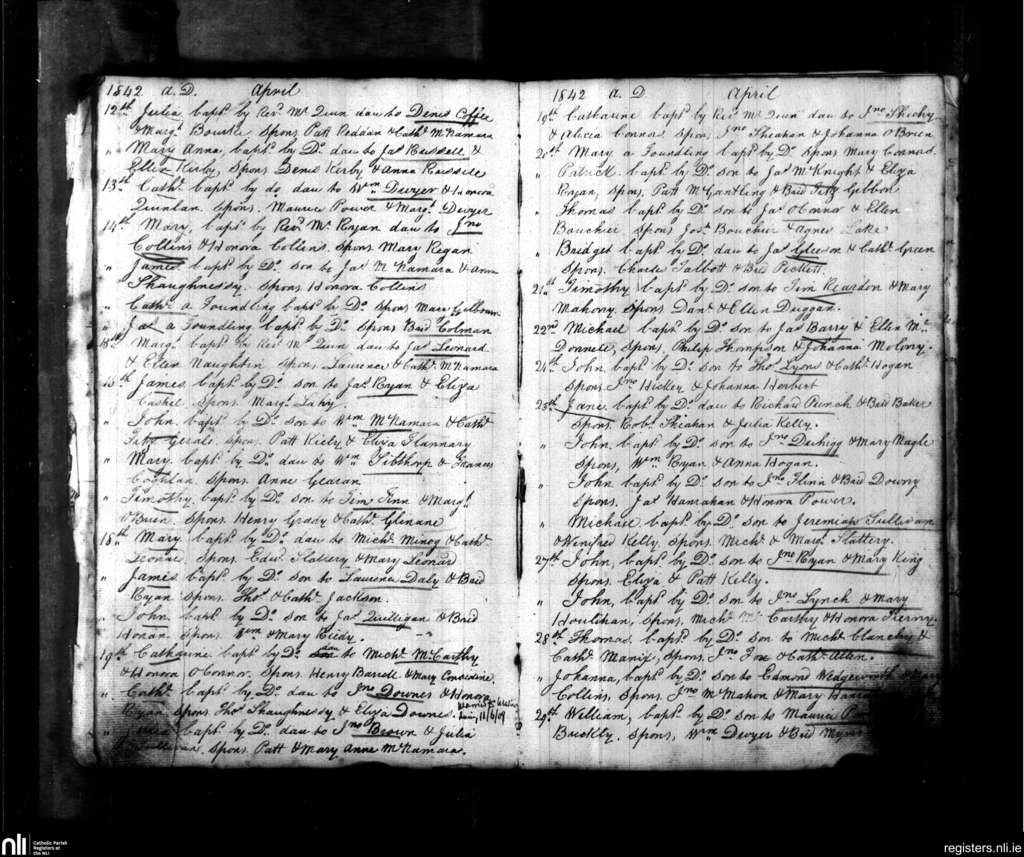 1842 A. D. April
12th Julia bapt by Revd Mr Quin dau to Denis Coffee
& Margt Bourke Spons Patt Reddan & Cathe McNamara
" Mary Anna, bapt by Do dau to Jas Russell &
Ellen Kirby, Spons Denis Kirby & Anna Russell
13th Cathe bapt by do dau to Wm Dwyer & Honora
Quinlan. Spons. Maurice Power & Margt Dwyer
14th Mary, bapt by Revd Mr Ryan dau to Jno
Collins & Honora Collins. Spons Mary Regan
" James bapt by Do son to Jas McNamara & Anna
Shaughnessy. Spons. Honora Collins
" Cathe a Foundling bapt by Do Spons Mary
" Jas a Foundling bapt by Do Spons Brid Colman
Margt bapt by Revd Mr Quin dau to Jas Leonard
& Ellen Naughtin Spons Laurence & Cathe McNamara
James bapt by Do son to Jas Ryan & Eliza
Cashel Spons. Margt Lahy
" John, bapt by Do son to Wm McNamara & Cathe
Fitz Gerald. Spons. Patt Kiely & Eliza Flannary
" Mary bapt by Do dau to Wm Sibthorp & Frances
Coghlan, Spons. Anne Gearan
" Timothy, bapt by Do son to Tim Finn & Margt
O'Brien. Spons Henry Grady & Cathe Glenane
18th Mary, bapt by Do dau to Michl Minog & Cathe
Leonard. Spons. Edwd Slattery & Mary Leonard
" James bapt by Do son to Laurence Daly & Brid
Ryan Spons Thos & Cathe Jackson.
" John bapt by Do son to Jas Quilligan & Brid
Honan. Spons. Wm & Mary Reidy.
19th Catharine bapt by Do to Michl McCarthy
& Honora O'Connor. Spons. Henry Barrett & Mary Considine
" Cathe bapt by Do dau to Jno Downes & Honora
Ryan Spons Thos Shaughnessy & Eliza Downes.
11/6/09
" Julia bapt by Do dau to Jno Brown & Julia
Sullivan, Spons. Patt & Mary Anne McNamara.
1842 A. D April
19th Catharine bapt by Revd Mr Quin dau to Jno Sheehy
& Alicea Connors Spons, Jno Sheahan & Johanna O'Brien
20th Mary a Foundling bapt by Do Spons Mary Connors.
" Patrick bapt by Do son to Jas McKnight & Eliza
Ryan, Spons, Patt McGantling & Brid Fitz Gibbon
" Thomas bapt by Do son to Jas O'Connor & Ellen
Bouchier Spons Jos. Bouchier & Agnes Lake
" Bridget bapt by Do dau to Jas Gleeson & Cathe Green
Spons. Charles Talbott & Brid Peckett.
21st Timothy bapt by Do son to Tim Reardon & Mary
Mahony. Spons Danl & Ellen Duggan.
22nd Michael bapt by Do son to Jas Barry & Ellen Mc
Donnell, Spons, Philip Thompson & Johanna Molony.
24th John bapt by Do son to Thos Lyons & Cathe Hogan
Spons Jno Hickey & Johanna Herbert
25th Jane, bapt by Do dau to Richard Punch & Brid Baker
Spons. Robt Sheahan & Julia Kelly.
" John, bapt by Do son to Jno Derhigg & Mary Nagle
Spons, Wm Ryan & Anna Hogan.
" John bapt by Do son to Jno Flinn & Brid Downy
Spons. Jas Hanrahan & Honora Power.
" Michael bapt by Do son to Jeremiah Sullivan
& Winifred Kelly, Spons. Michl & Margt Slattery.
27th John, bapt by Do son to Jno Ryan & Mary King
Spons. Eliza & Patt Kelly.
" John, bapt by Do son to Jno Lynch & Mary
Houlihan, Spons, Michl McCarthy & Honora Tierny.
28th Thomas bapt by Do son to Michl Clanchy &
Cathe Manix, Spons, Jno Fox & Cathe Allen.
" Johanna, bapt by Do dau to Edmond Wedgeworth & Mary
Collins, Spons. Jno McMahon & Mary
29th William, bapt by Do son to Maurice
Buckly, Spons, Wm Dwyer & Brid
nli Catholic Parish
Registers at
the NLI
registers.nli.ie